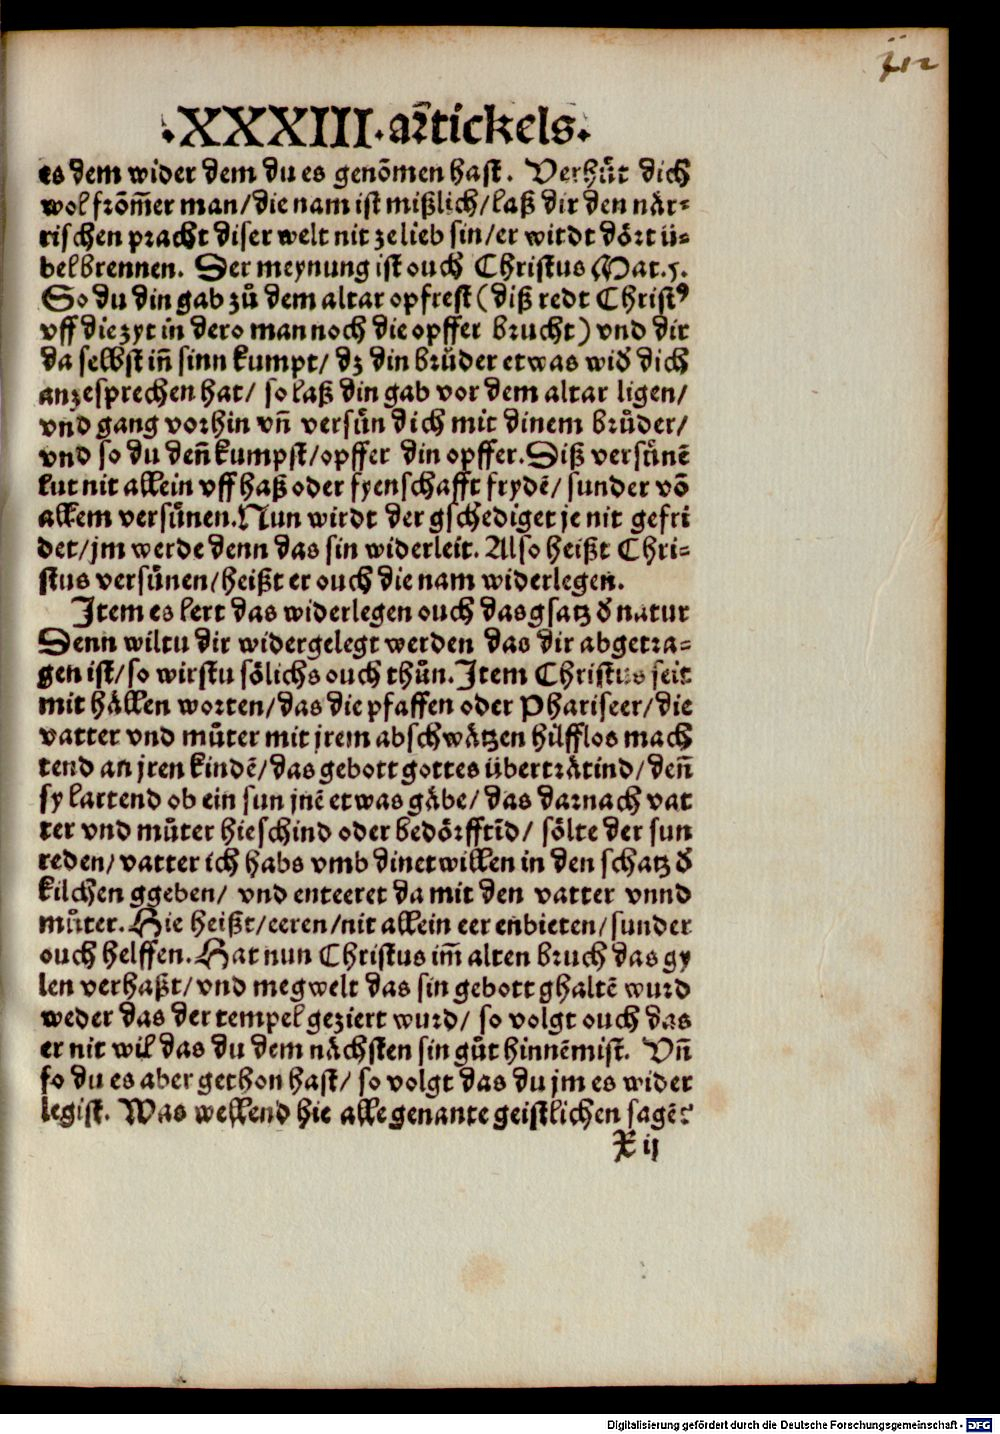 .XXXIII.artickels.
es dem wider dem du es genōmen hast. Verhuͤt dich
wol frōm̄er man/die nam ist mißlich/laß dir den när-
rischen pracht diser welt nit ze lieb sin/er wirdt dört ü-
bel brennen. Der meynung ist ouch Christus Mat.5.
So du din gab zuͦ dem altar opfrest (diß redt Christꝰ
vff die zyt in dero man noch die opffer brucht) vnd dir
da selbst in̄ sinn kumpt/ dz din bruͦder etwas wid̕ dich
anzesprechen hat/ so laß din gab vor dem altar ligen/
vnd gang vorhin vn̄ versuͤn dich mit dinem bruͦder/
vnd so du den̄ kumpst/opffer din opffer. Diß versuͤnē
lut nit allein vff haß oder fyenschafft frydē/ sunder vō
allem versuͤnen. Nun wirdt der gschediget je nit gefri
det/jm werde denn das sin widerleit. Also heißt Chri-
stus versuͤnen/heißt er ouch die nam widerlegen.
Item es lert das widerlegen ouch das gsatz d̕ natur
Denn wiltu dir widergelegt werden das dir abgetra-
gen ist/so wirstu sölichs ouch thuͦn. Item Christus seit
mit hällen worten/das die pfaffen oder Phariseer/die
vatter vnd muͦter mit jrem abschwätzen hilfflos mach
tend an jren kindē/das gebott gottes überträtind/den̄
sy lartend ob ein sun jnē etwas gäbe/ das darnach vat
ter vnd muͦter hieschind oder bedörfftīd/ sölte der sun
reden/vatter ich habs vmb dinet willen in den schatz d̕
kilchen ggeben/ vnd enteeret da mit den vatter vnnd
muͦter. Hie heißt/eeren/nit allein eer enbieten/sunder
ouch helffen. Hat nun Christus im̄ alten bruch das gy
len verhaßt/vnd me gwelt das sin gebott ghaltē wurd
weder das der tempel geziert wurd/ so volgt ouch das
er nit wil das du dem nächsten sin guͦt hinnēmist. Vn̄
so du es aber gethon hast/ so volgt das du jm es wider
legist. Was wellend hie alle genante geistlichen sagē?
X ij
Digitalisierung gefördert durch die Deutsche Forschungsgemeinschaft - DFG